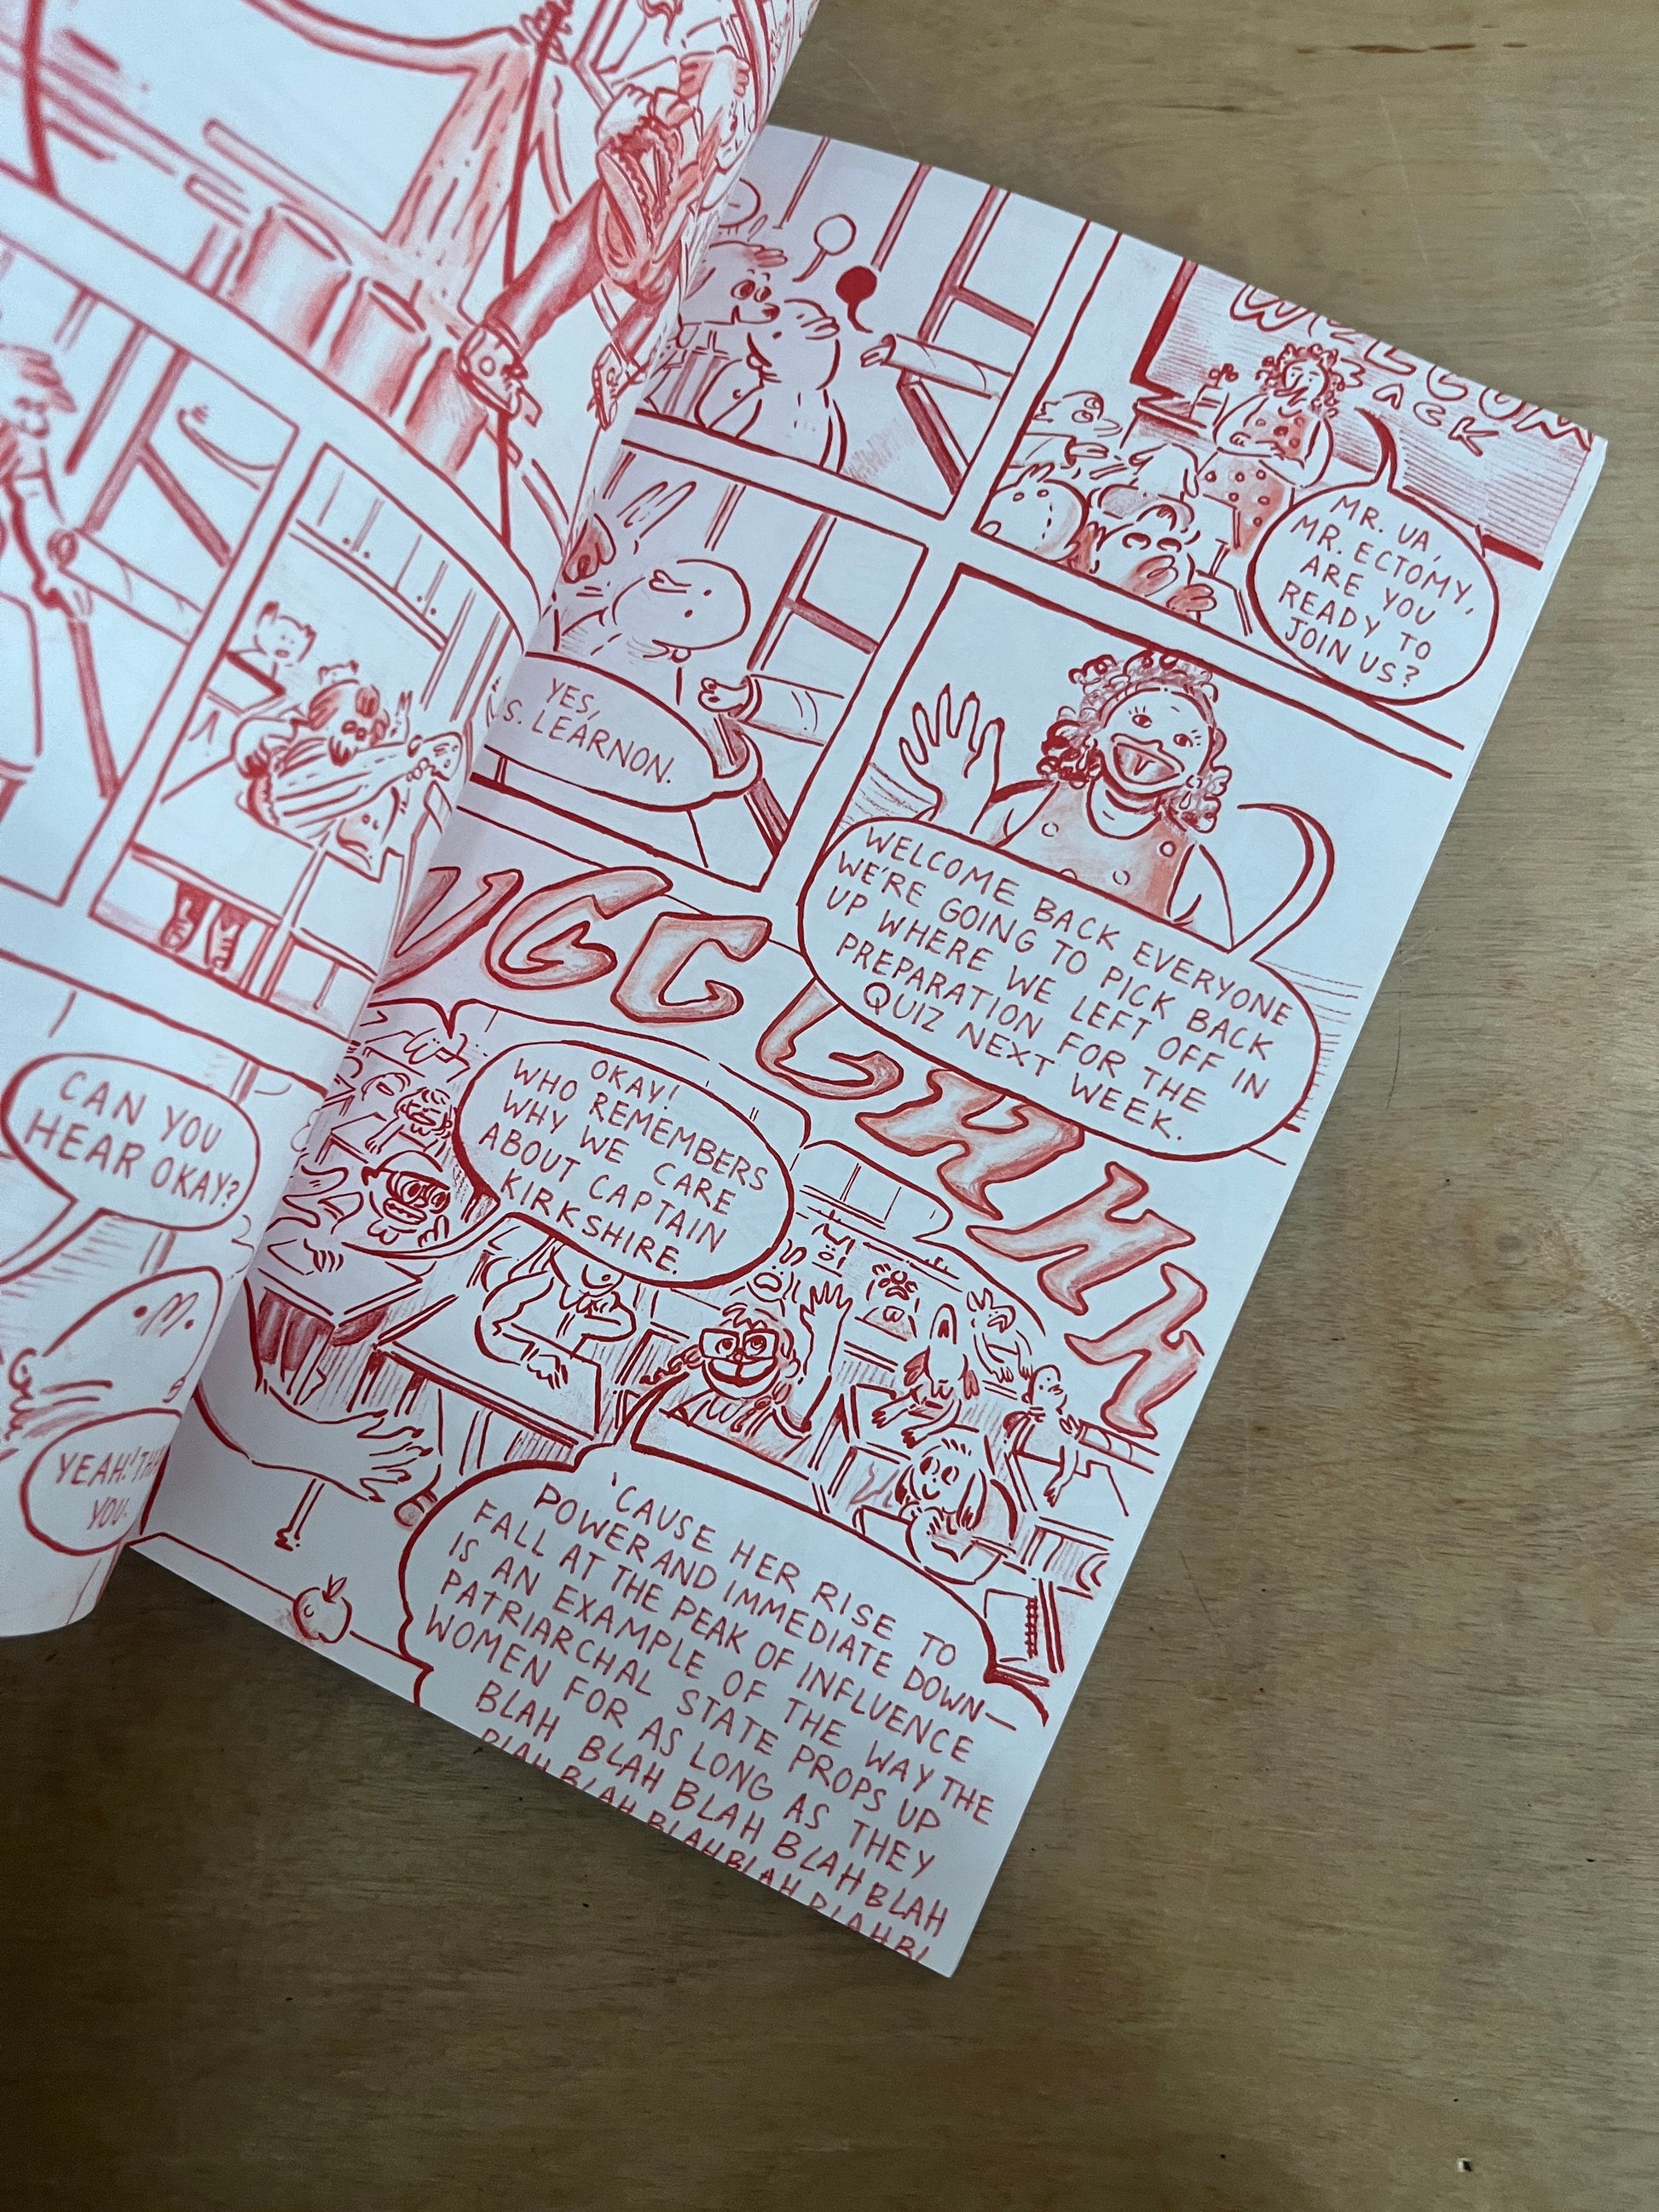 CAN YOU
HEAR OKAY?
YEAH!
YOU.
WELCOM
BACK
MR. UA,
MR. ECTOMY,
ARE YOU
READY TO
JOIN US?
YES,
S. LEARNON.
WELCOME BACK EVERYONE
WE'RE GOING TO PICK BACK
UP WHERE WE LEFT OFF IN
PREPARATION FOR THE
QUIZ NEXT WEEK.
UGGGHHHH
OKAY!
WHO REMEMBERS
WHY WE CARE
ABOUT CAPTAIN
KIRKSHIRE.
'CAUSE HER RISE TO
POWER AND IMMEDIATE DOWN—
FALL AT THE PEAK OF INFLUENCE
IS AN EXAMPLE OF THE WAY THE
PATRIARCHAL STATE PROPS UP
WOMEN FOR AS LONG AS THEY
BLAH BLAH BLAH BLAH BLAH
BLAH BLAH BLAH BLAH BLAH BL